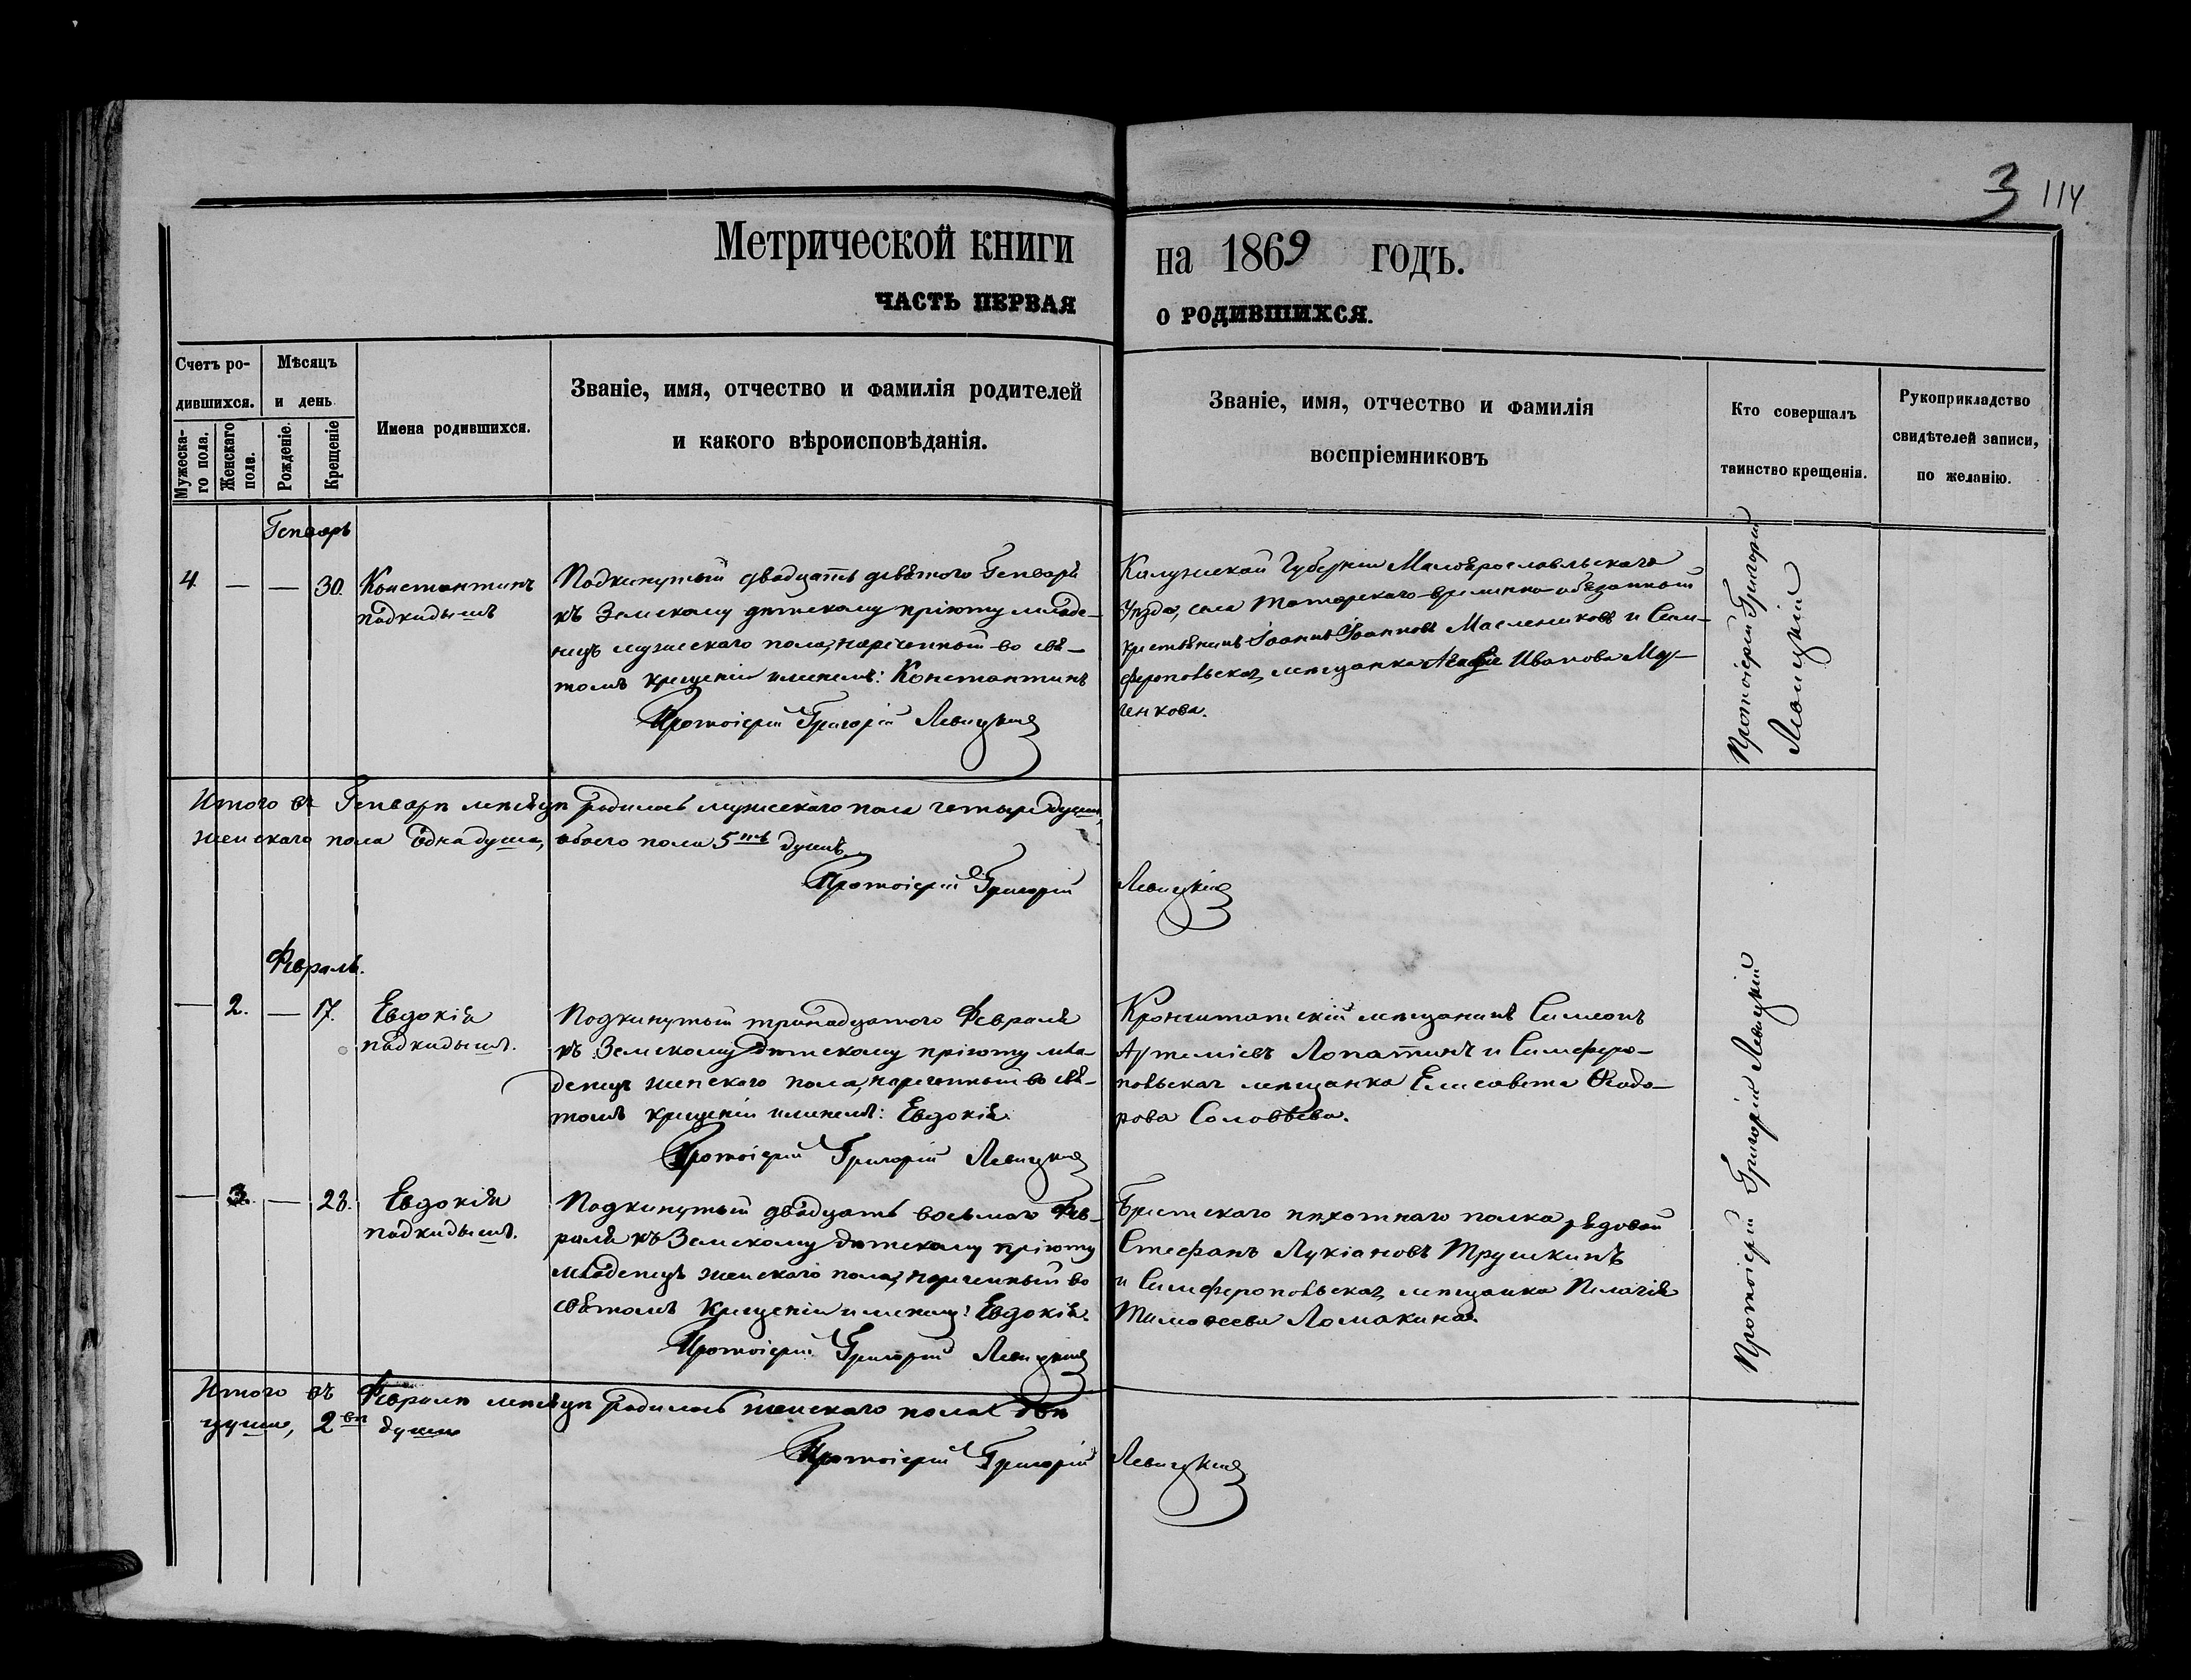 3 114
Метрической книги на 1869 годъ.
ЧАСТЬ ПЕРВАЯ О РОДИВШИХСЯ.
Счетъ ро-
дившихся.
Мужеска-
го пола.
Женскаго
пола.
Мѣсяцъ
и день
Рожденіе.
Крещеніе
Имена родившихся.
Званіе, имя, отчество и фамилія родителей
и какого вѣроисповѣданія.
Званіе, имя, отчество и фамилія
воспріемниковъ
Кто совершалъ
таинство крещенія.
Рукоприкладство
свидѣтелей записи,
по желанію.
Генварь
4. — — 30. Константинъ
подкидышъ
Подкинутый двадцать девятого Генваря
къ Земскому дѣтскому пріюту младе-
нецъ мужескаго пола, нареченный во свя-
томъ крещеніи именемъ: Константинъ
Протоіерей Григорій Левицкій
Калужской Губерніи Малоярославльскаго
Уѣзда, села Татарскаго временно-обязанный
крестьянинъ Іоаннъ Іоанновъ Маслениковъ и Сим-
феропольская мещанка Иванова Му-
ченкова.
Протоіерей Григорій
Левицкій
Итого въ Генварѣ месяцѣ родилось мужескаго пола четыре души,
женскаго пола одна душа, обоего пола 5ть душъ.
Протоіерей Григорій Левицкій
Февраль.
— 2. — 17. Евдокія
подкидышъ.
Подкинутый тринадцатого Февраля
къ Земскому дѣтскому пріюту мла-
денецъ женскаго пола, нареченный во свя-
томъ крещеніи именемъ: Евдокія
Протоіерей Григорій Левицкій
Кронштатскій мещанинъ Симеонъ
Артеміевъ Лопатинъ и Симферо-
польская мещанка Елисавета Ѳеодо-
рова Соловѣева.
— 3. — 28. Евдокія
подкидышъ.
Подкинутый двадцать восьмого Фев-
раля къ Земскому дѣтскому пріюту
младенецъ женскаго пола, нареченный во
святомъ крещеніи именемъ: Евдокія.
Протоіерей Григорій Левицкій
Брестскаго пѣхотнаго полка рядовой
Стефанъ Лукіановъ Трушкинъ
и Симферопольская мещанка Пелагія
Тимоѳеева Ломакина.
Протоіерей Григорій Левицкій
Итого въ Февралѣ месяцѣ родилось женскаго пола двѣ
души, 2вѣ души
Протоіерей Григорій Левицкій